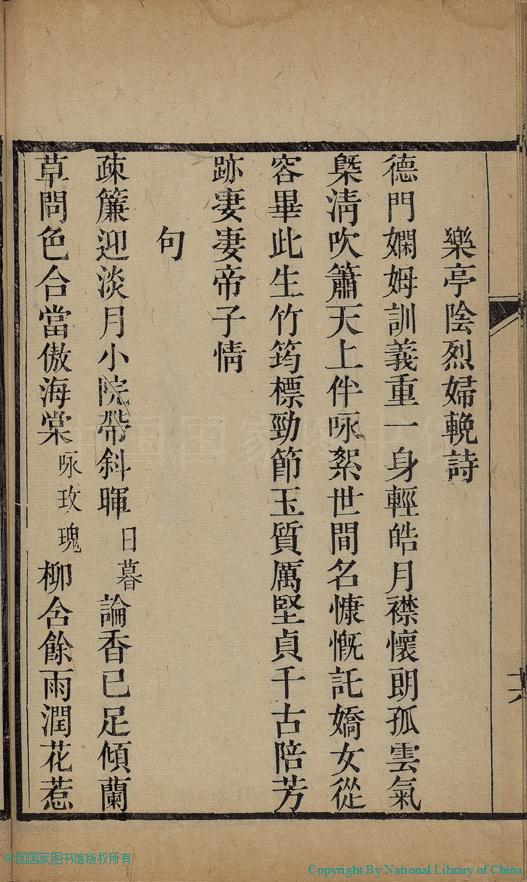 樂亭陰烈婦輓詩
德門嫻姆訓義重一身輕皓月襟懷朗孤雲氣
槩淸吹簫天上伴咏絮世間名慷慨託嬌女從
容畢此生竹筠標勁節玉質厲堅貞千古陪芳
跡妻凄帝子情
句
疎簾迎淡月小院帶斜暉日暮論香已足傾蘭
草問色合當傲海棠咏玫瑰柳含餘雨潤花惹
中国国家图书馆版权所有
Copyright By National Library of China